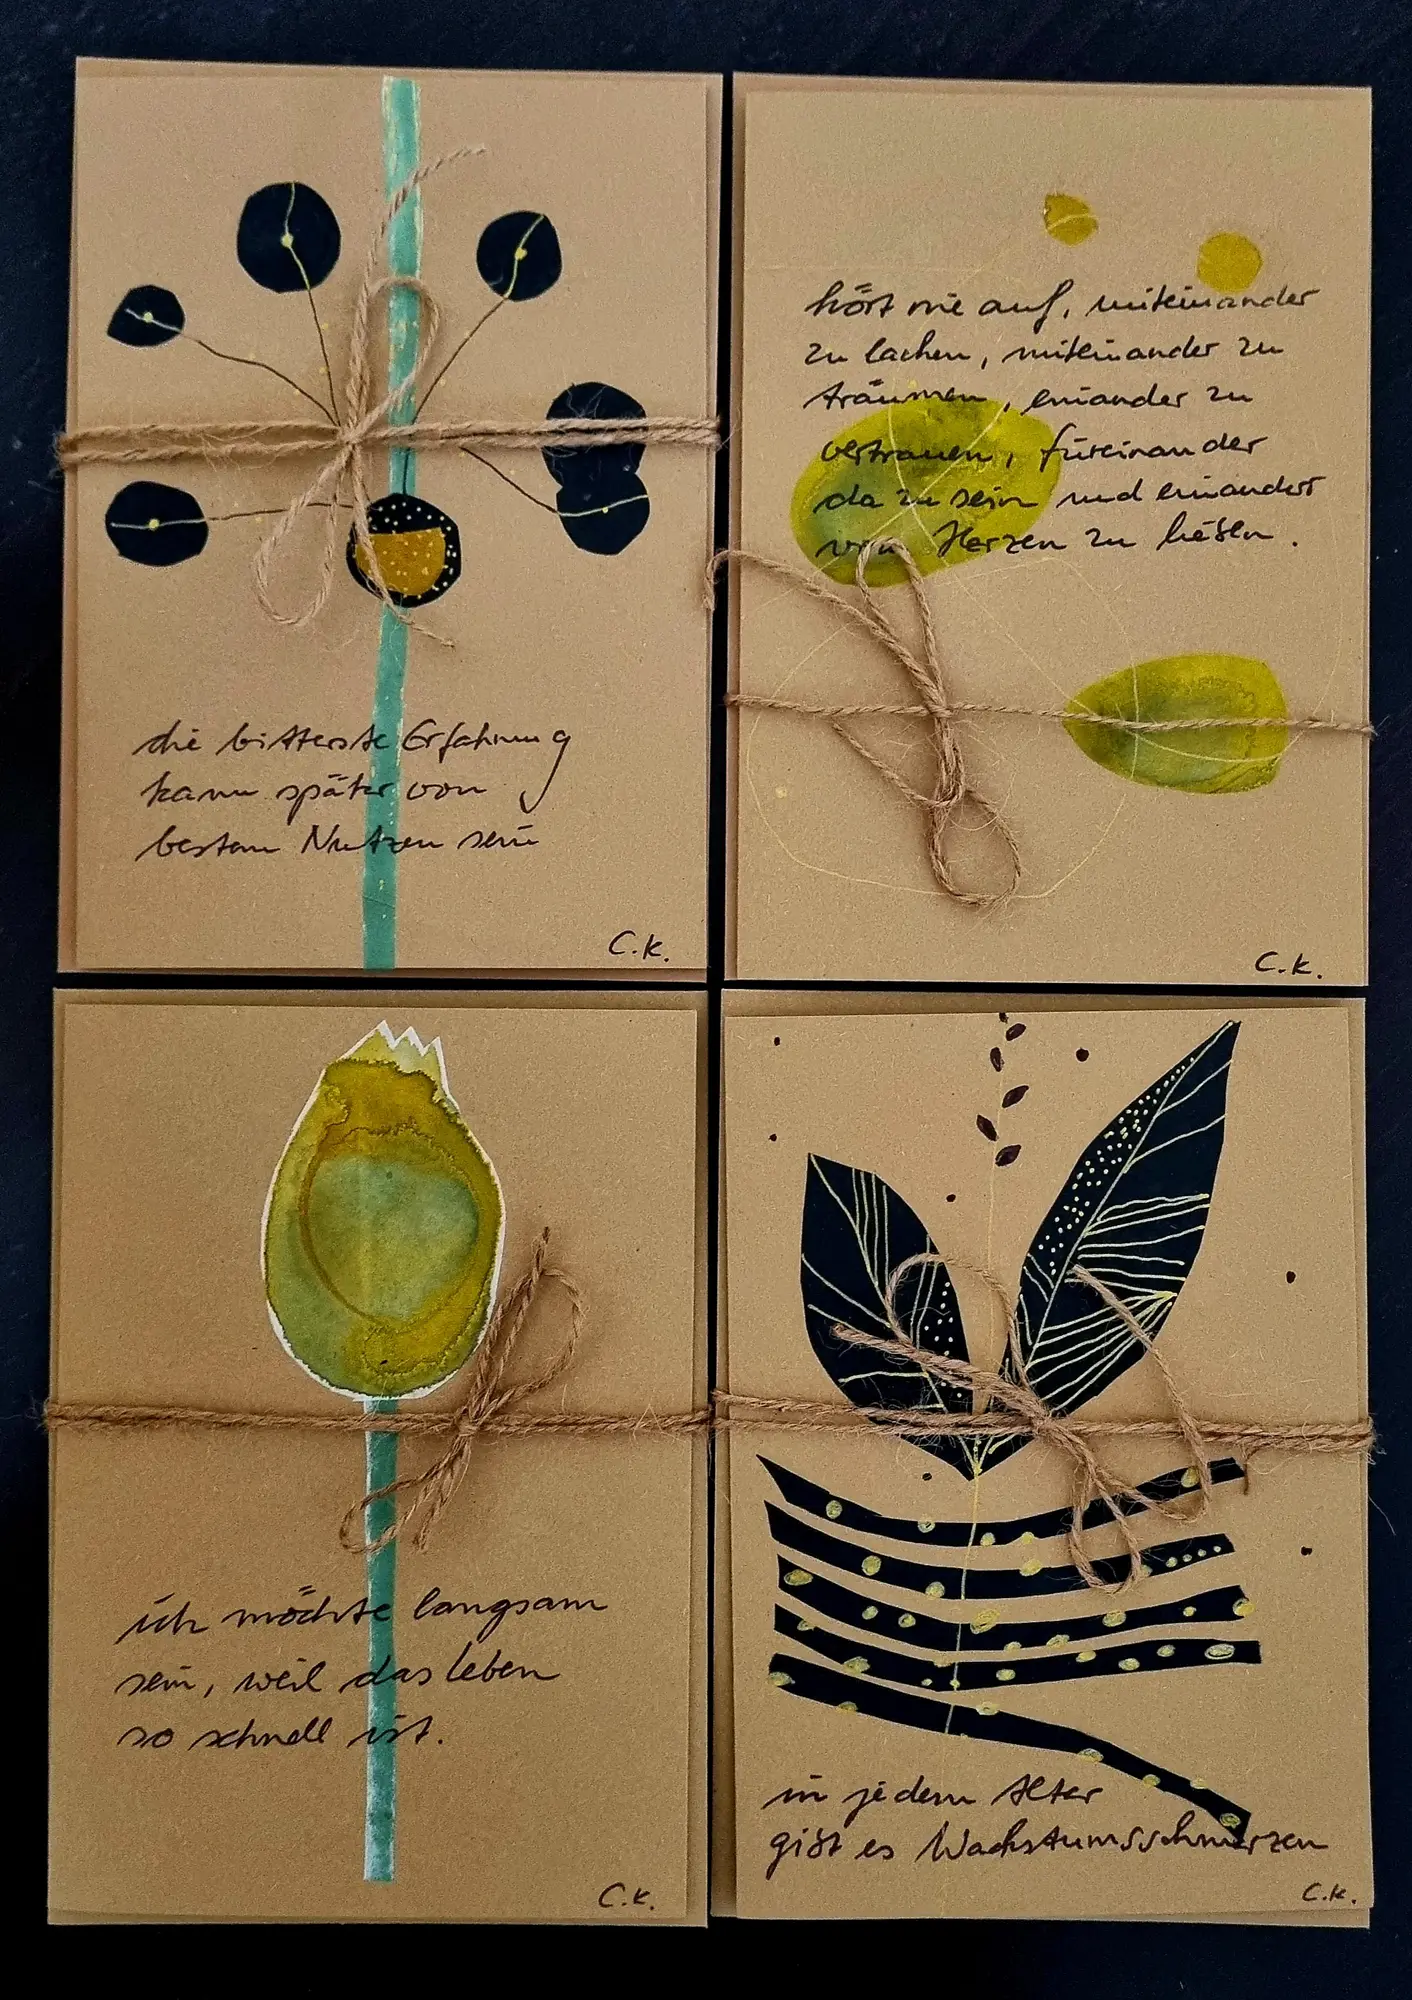 die bitterste Erfahrung
kann später von
bestem Nutzen sein
C.K.
hört nie auf, miteinander
zu lachen, miteinander zu
träumen, einander zu
vertrauen, füreinander
da zu sein und einander
von Herzen zu lieben.
C.K.
ich möchte langsam
sein, weil das Leben
so schnell ist.
C.K.
in jedem Alter
gibt es Wachstumsschmerzen
C.K.